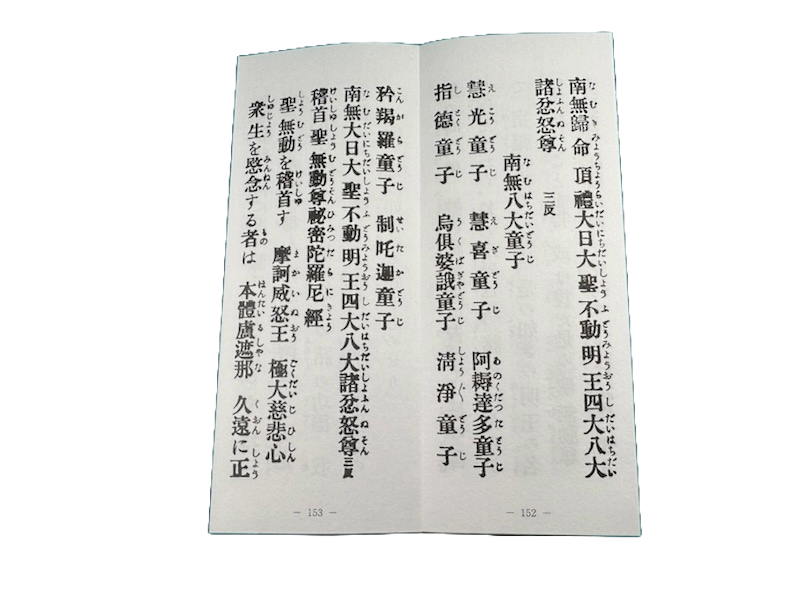 南無歸命頂禮大日大聖不動明王四大八大
諸忿怒尊 三反
南無八大童子
慧光童子 慧喜童子 阿耨達多童子
指德童子 烏俱婆誐童子 淸淨童子
— 152 —
矜羯羅童子 制吒迦童子
南無大日大聖不動明王四大八大諸忿怒尊三反
稽首聖無動尊祕密陀羅尼經
聖無動を稽首す 摩訶威怒王 極大慈悲心
衆生を愍念する者は 本體盧遮那 久遠に正
— 153 —